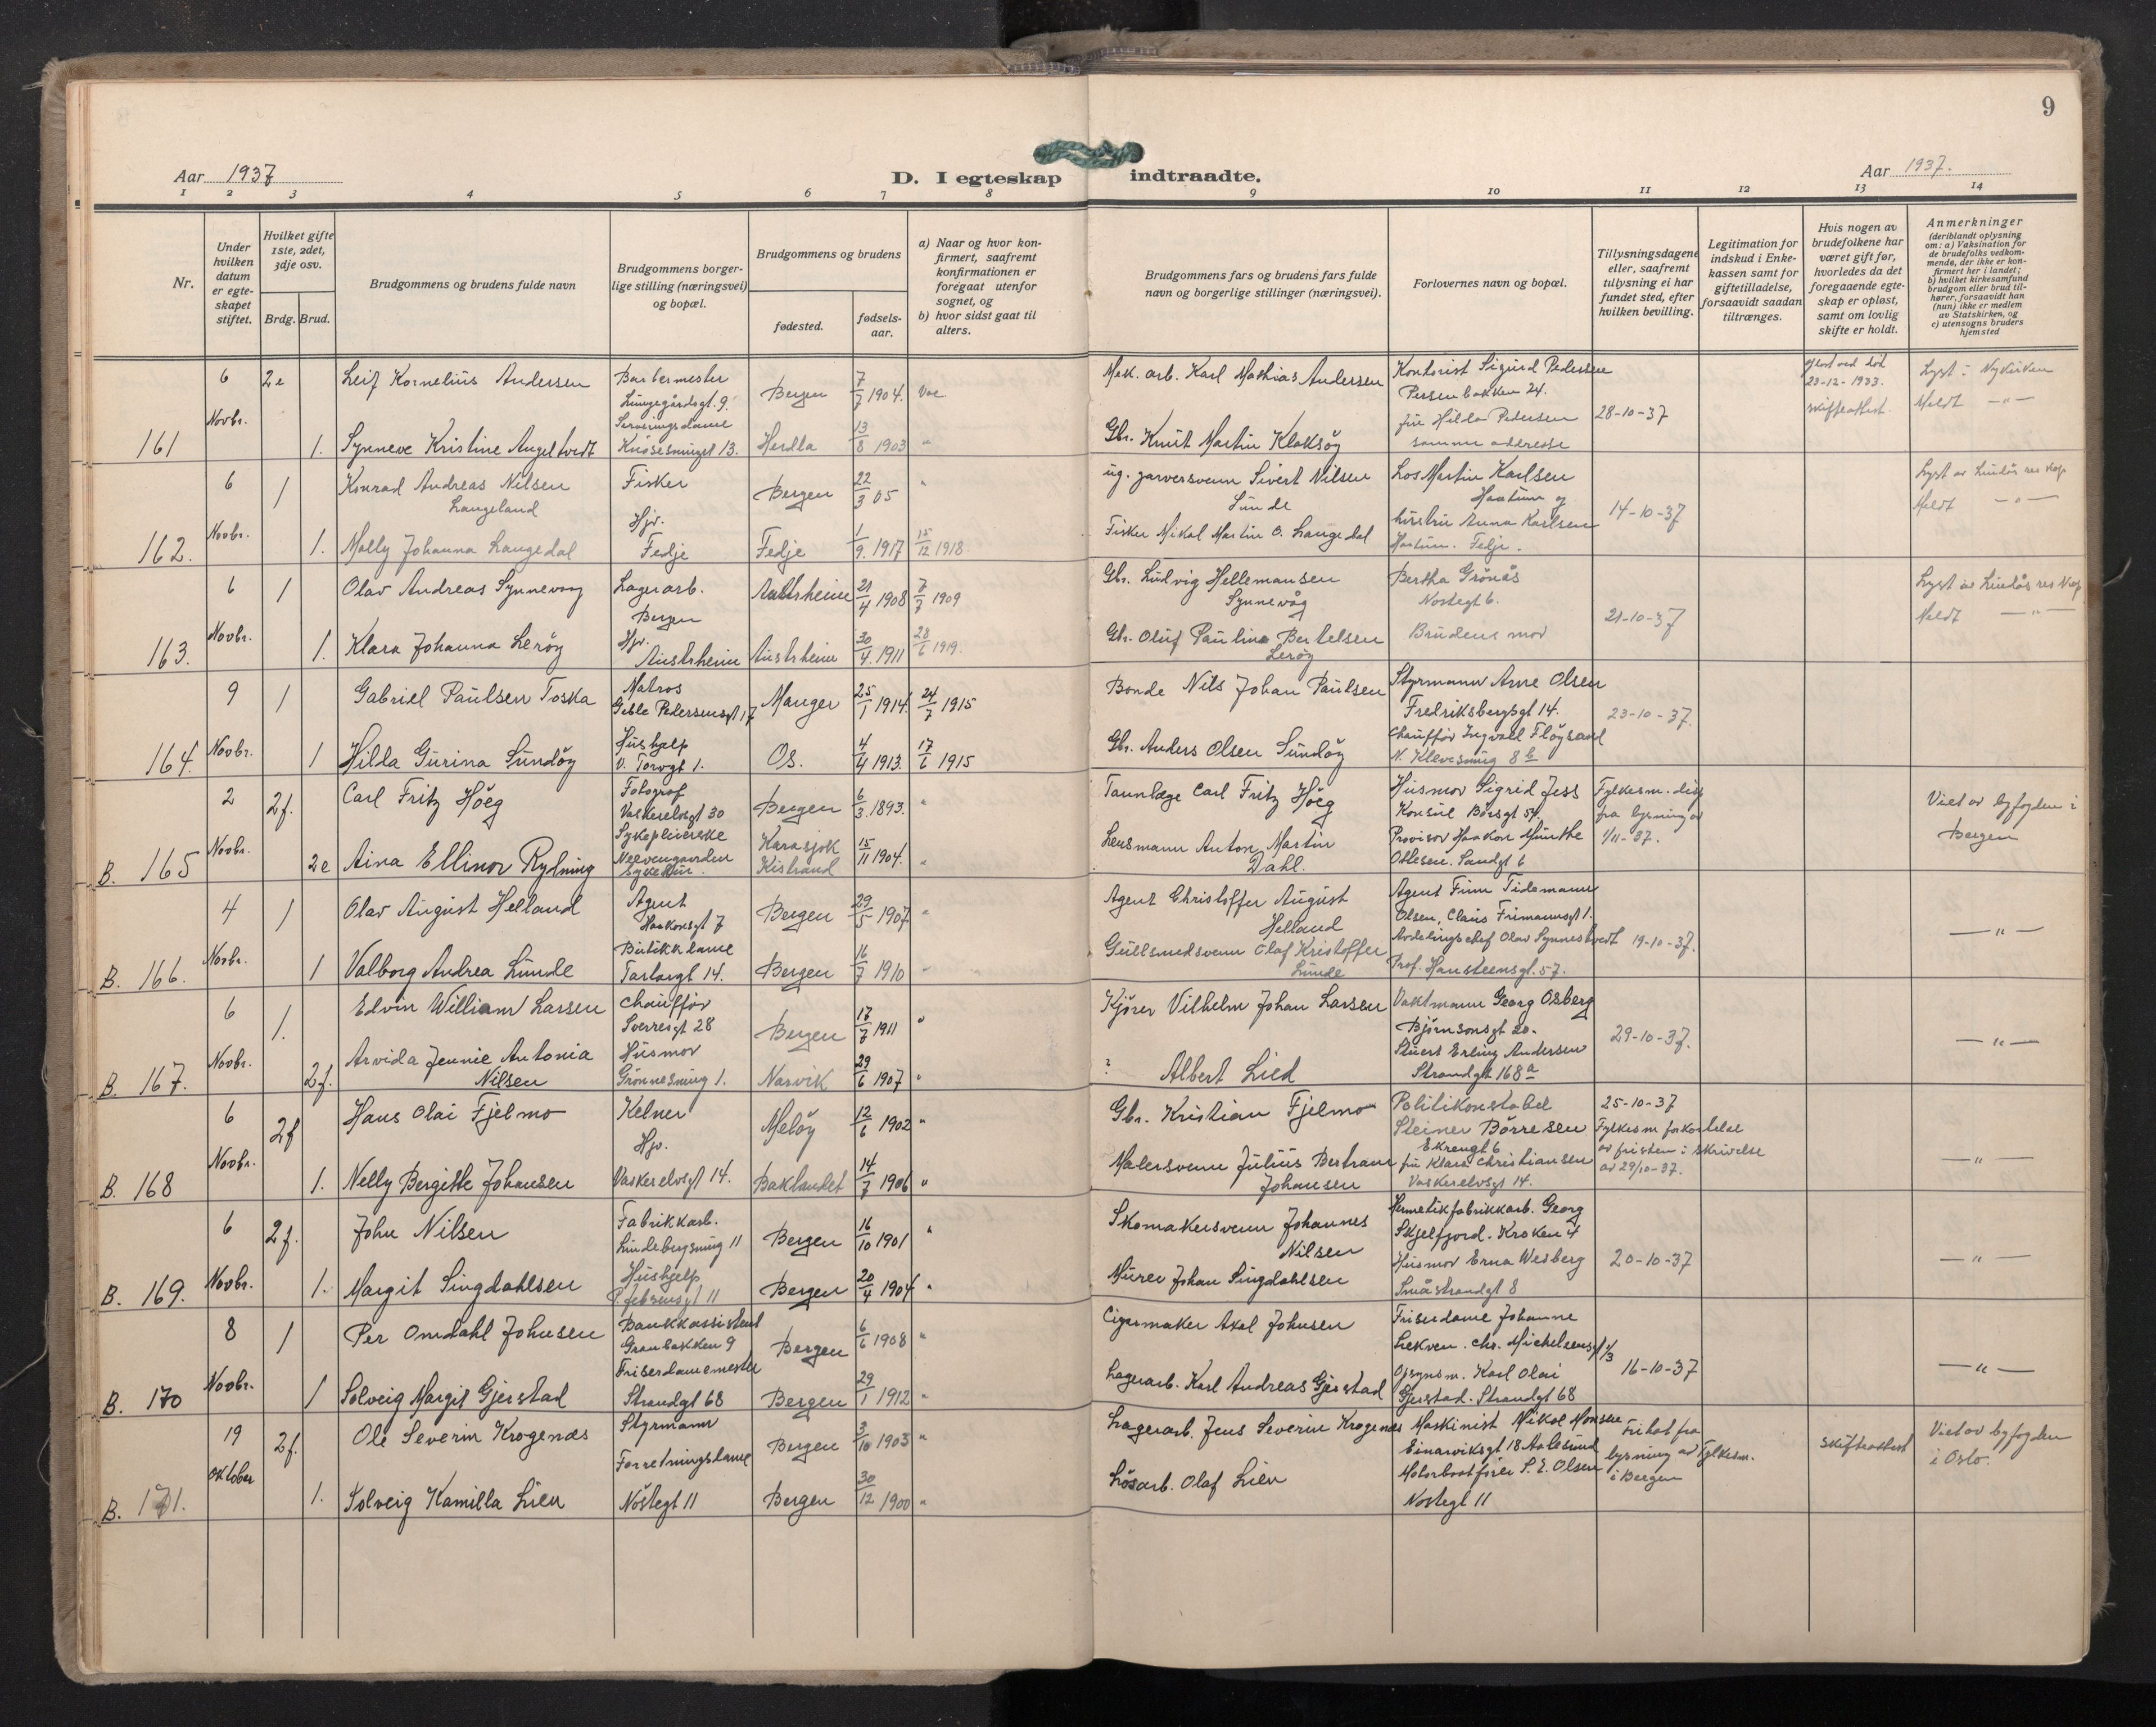 9
Aar 1937
D. I egteskap indtraadte.
Aar 1937.
1 2 3 4 5 6 7 8 9 10 11 12 13 14
Nr.
Under hvilken datum er egteskapet stiftet.
Hvilket gifte 1ste, 2det, 3dje osv.
Brdg. Brud.
Brudgommens og brudens fulde navn
Brudgommens borgerlige stilling (næringsvei) og bopæl.
Brudgommens og brudens
fødested.
fødselsaar.
a) Naar og hvor konfirmert, saafremt konfirmationen er foregaat utenfor sognet, og
b) hvor sidst gaat til alters.
Brudgommens fars og brudens fars fulde navn og borgerlige stillinger (næringsvei).
Forlovernes navn og bopæl.
Tillysningsdagene eller, saafremt tillysning ei har fundet sted, efter hvilken bevilling.
Legitimation for indskud i Enkekassen samt for giftetilladelse, forsaavidt saadan tiltrænges.
Hvis nogen av brudefolkene har været gift før, hvorledes da det foregaaende egteskap er opløst, samt om lovlig skifte er holdt.
Anmerkninger
(deriblandt oplysning om: a) Vaksination for de brudefolks vedkommende, der ikke er konfirmert her i landet; b) hvilket kirkesamfund brudgom eller brud tilhører, forsaavidt han (hun) ikke er medlem av Statskirken, og c) utensogns bruders hjemsted
161 6 Novbr. 2e Leif Kornelius Andersen Barbermester Lungegårdsgt. 9. Bergen 7/7 1904.
Mek. arb. Karl Mathias Andersen Kontorist Sigurd Pedersen Persenbakken 24. 28-10-37 23-12-1933. skifteattest. Lyst i Nykirken
1. Synneve Kristine Angeltvedt Serveringsdame 13. Herdla 13/8 1903 "
Gbr. Knut Martin Klaksöy fru Hilda Pedersen samme addresse Meldt -"-
162. 6 Novbr. 1 Konrad Andreas Nilsen Langeland Fisker Bergen 22/3 05 "
ug. garversvenn Sivert Nilsen Lunde Los Martin Karlsen 14-10-37 Lyst av Lindås res kap
1. Molly Johanna Langedal Hjv. Fedje Fedje 1/9. 1917 15/12 1918.
Fisker Mikal Martin O. Langedal Anna Karlsen Fedje. Meldt -"-
163. 6 Novbr. 1 Olav Andreas Synnevaag Lagerarb. Bergen Austrheim 21/4 1908 7/7 1909
Gbr. Ludvig Hellemansen Synnevåg Bertha Grönås Nostegt 6. 21-10-37 Lyst av Lindås res kap
1. Klara Johanna Leröy Hjv. Austrheim Austrheim 30/4. 1911 28/6 1919.
Gbr. Oluf Paulinus Bertelsen Leröy Brudens mor Meldt -"-
164. 9 Novbr. 1 Gabriel Paulsen Toska Matros Geble Pedersensgt 17 Manger 25/1 1914. 24/7 1915
Bonde Nils Johan Paulsen Styrmann Arne Olsen Fredriksbergsgt 14. 23-10-37.
1 Hilda Gurina Sundöy Hushjelp V. Torvgt 1. Os. 4/4 1913. 17/6 1915
Gbr. Anders Olsen Sundöy Chauffør Ingvald Fløysand N. Klevesmug 8b
B. 165 2 Novbr. 2f. Carl Fritz Höeg Fotograf Vaskerelvsgt 30 Bergen 6/3 1893. "
Tannlæge Carl Fritz Höeg Husmor Sigrid Jess Konsul Børsgt 54. Fylkesm. disp fra lysning av 1/11-37. Viet av byfogden i Bergen
2e Aina Ellinor Rylning Sykepleierske Neevengaarden Sykehus. Karasjok Kistrand 15/11 1904. "
Lensmann Anton Martin Dahl. Provisor Haakon Munthe Ottesen. Sandgt 6
B. 166. 4 Novbr. 1 Olav August Helland Agent Haakonsgt 7 Bergen 29/5 1907 "
Agent Christoffer August Helland Agent Finn Tidemann Olsen, Claus Frimannsgt 1. 19-10-37. -"-
1 Valborg Andrea Lunde Butikkdame Tartargt 14. Bergen 16/7 1910 "
Gullsmedsvenn Olaf Kristoffer Lunde Avdelingschef Olav Synnestvedt Prof. Hansteensgt. 57.
B. 167. 6 Novbr. 1. Edvin William Larsen Chauffør Sverresgt 28 Bergen 17/7 1911 "
Kjörer Vilhelm Johan Larsen Vaktmann Georg Osberg Bjørnsonsgt 20. 29-10-37. -"-
2f. Arvida Jennie Antonia Nilsen Husmor Grönnesmug 1. Narvik 29/6 1907 "
? Albert Lied Stuert Erling Andersen Strandgt 168a
B. 168 6 Novbr. 2f Hans Olai Fjelmo Kelner Meløy 12/6 1902 "
Gbr. Kristian Fjelmo Politikonstabel Steiner Börresen Ekrengt 6 25-10-37 Fylkesm forkortelse av fristen i skrivelse av 29/10-37. -"-
1. Nelly Bergitte Johansen Hjv. Vaskerelvsgt 14. Baklandet 14/7 1906 "
Malersvenn Julius Bertram Johansen fru Klara Christiansen Vaskerelvsgt 14.
B. 169. 6 Novbr. 2f. John Nilsen Fabrikkarb. 11 Bergen 16/10 1901 "
Skomakersvenn Johannes Nilsen Hermetikfabrikkarb. Georg Skjelfjord. Kroken 4 20-10-37 -"-
1. Margit Singdahlsen Hushjelp P. Jebsensgt 11 Bergen 20/4 1904 "
Murer Johan Singdahlsen Husmor Erna Wesberg Småstrandgt 8
B. 170 8 Novbr. 1 Per Omdahl Johnsen Bankkassistent Granbakken 9 Bergen 6/6 1908 "
Cigarmaker Axel Johnsen Friserdame Johanne Lekven. Chr. Michelsensgt 16-10-37 -"-
1 Solveig Margit Gjerstad Friserdamemester Strandgt 68 Bergen 29/1 1912 "
Lagerarb. Karl Andreas Gjerstad Opsynsm. Karl Olai Gjerstad. Strandgt 68
B. 171. 19 Oktober 2f. Ole Severin Krogenæs Styrmann Bergen 3/10 1903 "
Lagerarb. Jens Severin Krogenæs Maskinist Nikol Monsen Einarviksgt 18 Aalesund Fritat fra lysning av Fylkesm. i Bergen skifteattest Viet av byfogden i Oslo.
1. Solveig Kamilla Lien Forretningsdame Nöstegt 11 Bergen 30/12 1900 "
Lösarb. Olaf Lien Motorbaatfører S. E. Olsen Nostegt 11